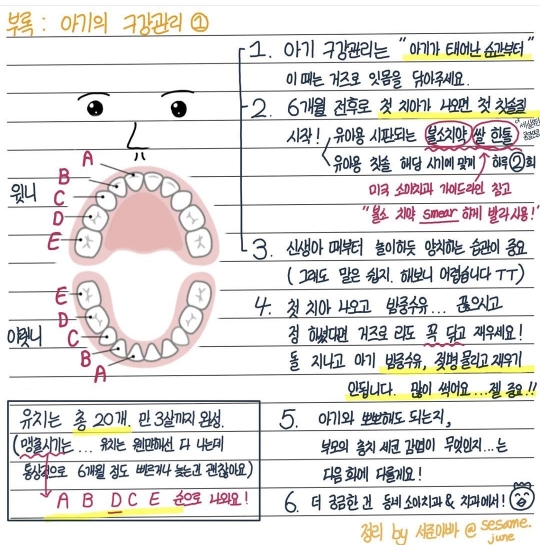 부록 : 아기의 구강관리 ①
1. 아기 구강관리는 "아기가 태어난 순간부터"
이 때는 거즈로 잇몸을 닦아주세요.
2. 6개월 전후로 첫 치아가 나오면 첫 칫솔질
시작! 유아용 시판되는 불소치약 쌀 한톨
유아용 칫솔 해당 시기에 맞게 하루 ②회
미국 소아치과 가이드라인 참고
"불소 치약 smear 하게 발라 사용!"
3. 신생아 때부터 놀이하듯 양치하는 습관이 중요
( 그래도 말은 쉽지. 해보니 어렵습니다 ㅠㅠ )
4. 첫 치아 나오고 밤중수유... 끊으시고
정 하셨다면 거즈로라도 꼭 닦고 재우세요!
돌 지나고 아기 밤중수유, 젖병 물리고 재우기
안됩니다. 많이 썩어요...젤 중요!!
5. 아기와 뽀뽀해도 되는지,
부모의 충치 세균 감염이 무엇인지...는
다음 회에 다룰게요!
6. 더 궁금한 건 동네 소아치과 & 치과에서!
윗니
A
B
C
D
E
아랫니
E
D
C
B
A
유치는 총 20개. 만 3살까지 완성.
(맹출시기는 ... 유치는 웬만해선 다 나는데
통상적으로 6개월 정도 빠르거나 늦는건 괜찮아요)
A B D C E 순으로 나와요!
정리 by 서준아빠 @ sesame.
june